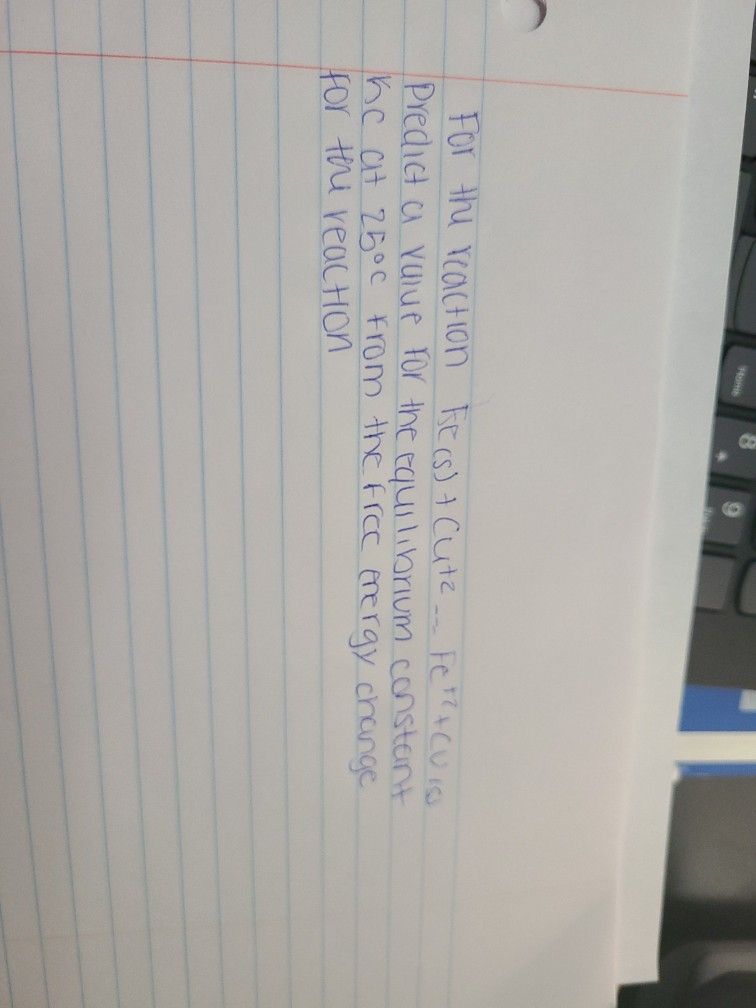 For the reaction Fe(s) + Cu+2 -- Fe+2 + Cu (s)
Predict a value for the equilibrium constant
Kc at 25°C from the free energy change
for the reaction
Home
8
*
9